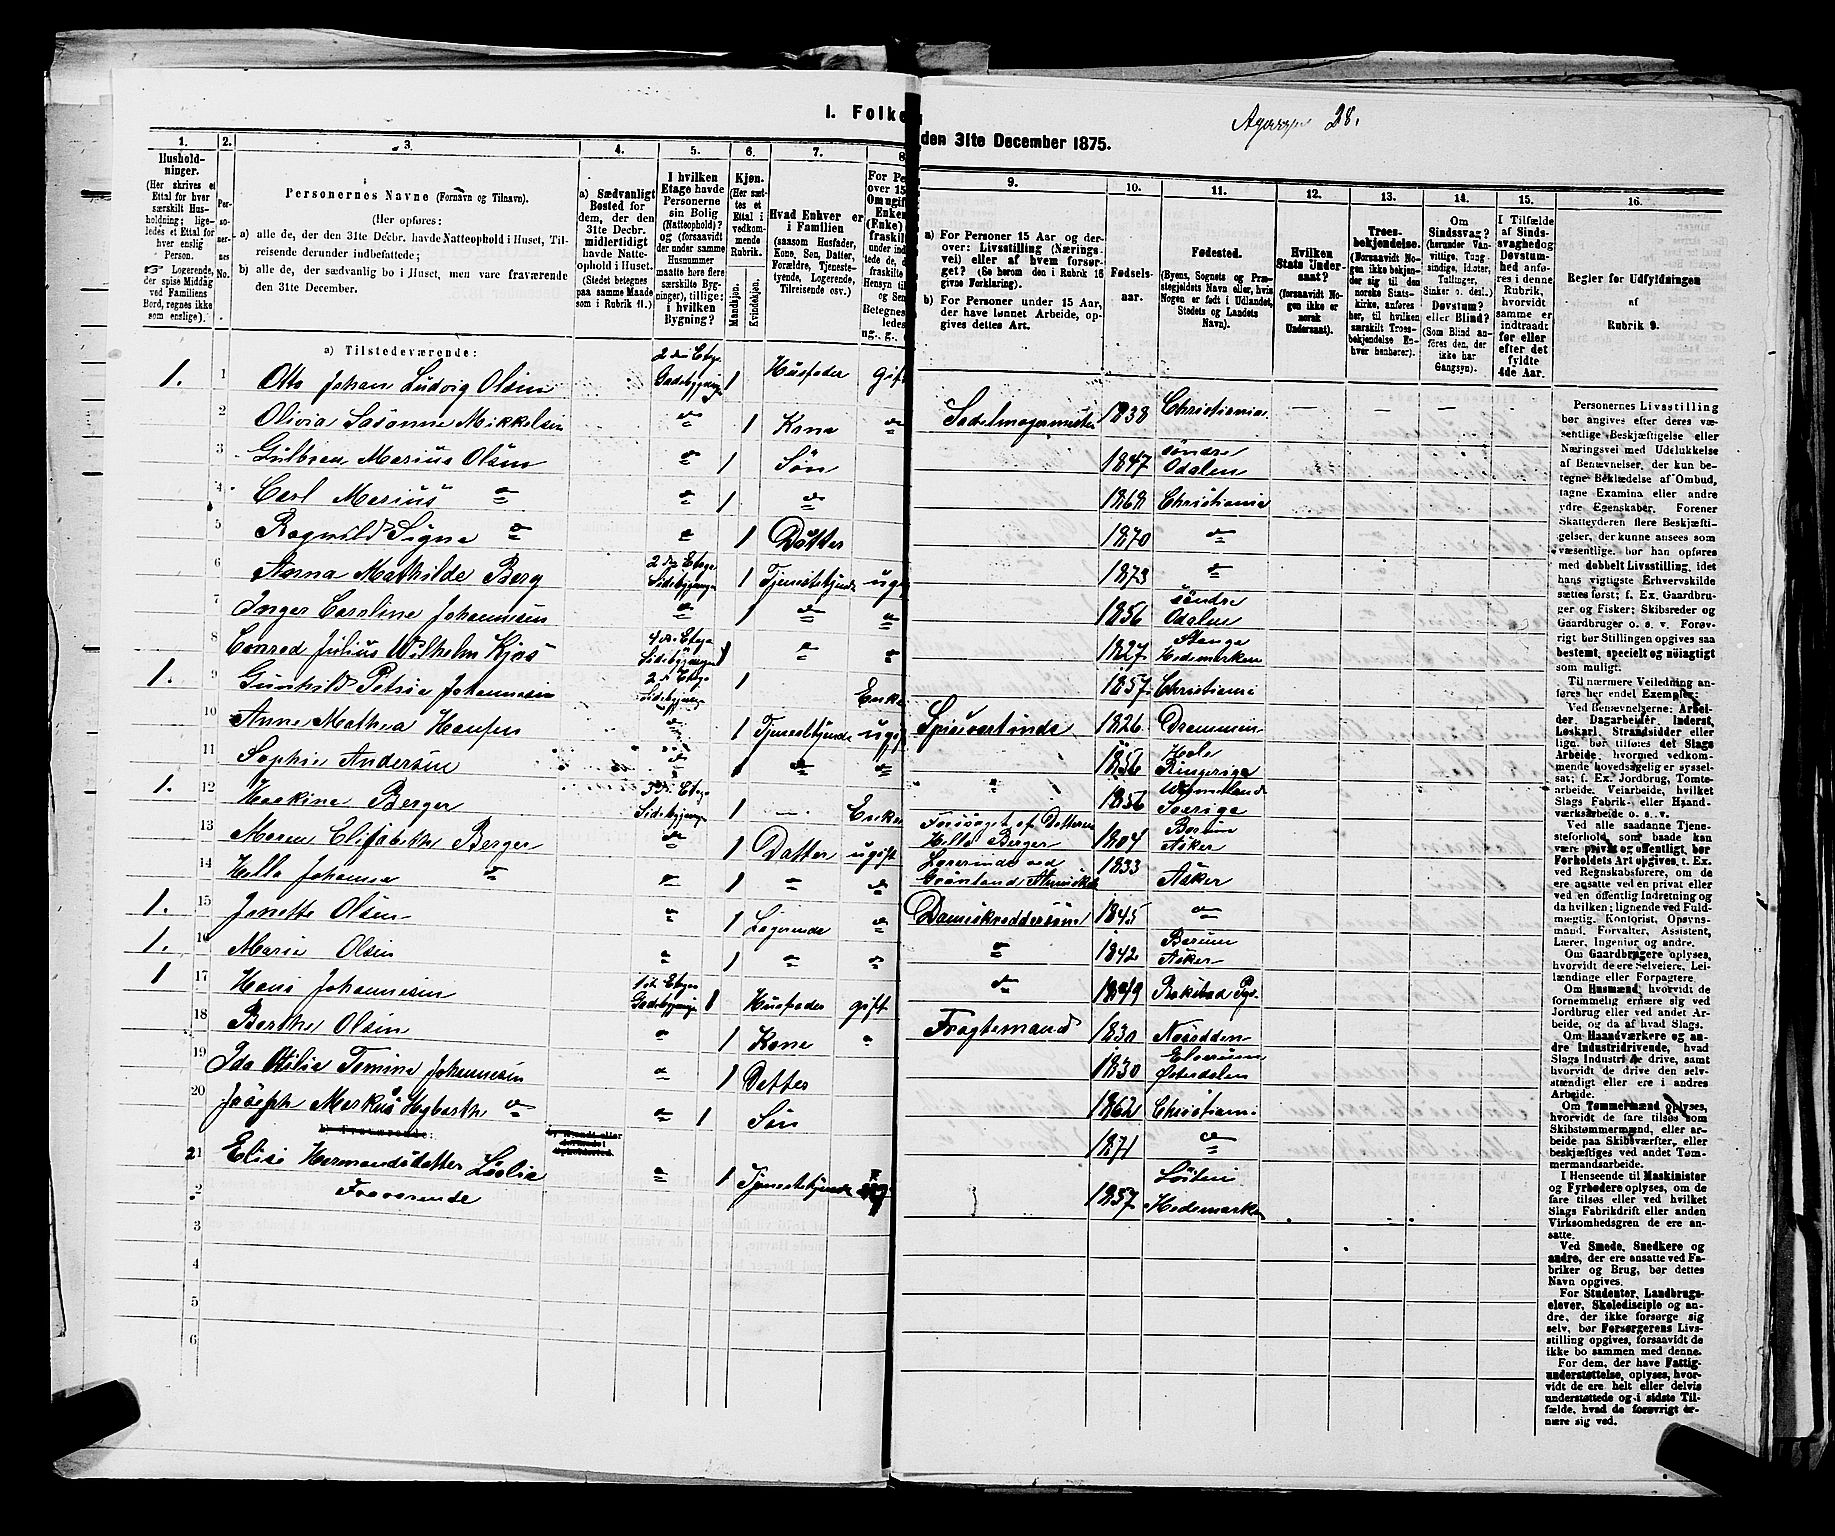 I. Folke
den 31te December 1875.
28.
1.
Husholdninger.
(Her skrives et
Ettal for hver
særskilt Husholdning;
ligeledes et Ettal for
hver enslig
Person.
Logerende,
der spise Middag
ved Familiens
Bord, regnes ikke
som enslige).
2.
Personernes
No.
3.
Personernes Navne (Fornavn og Tilnavn).
(Her opføres:
a) alle de, der den 31te Decbr. havde Natteophold i Huset, Tilreisende
derunder indbefattede;
b) alle de, der sædvanlig bo i Huset, men vare fraværende
den 31te December.
4.
a) Sædvanligt
Bosted for
dem, der den
31te Decbr.
midlertidigt
havde Natteophold
i Huset.
(Stedet betegnes
paa samme Maade
som i Rubrik 11.)
5.
I hvilken
Etage havde
Personerne
sin Bolig
(Natteophold)?
og (forsaavidt
der under samme
Husnummer
maatte høre flere
særskilte Bygninger),
tillige:
i hvilken
Bygning?
6.
Kjøn.
(Her sættes
et
Ettal i
vedkommende
Rubrik.
Mandkjøn.
Kvindekjøn.
7.
Hvad Enhver er
i Familien
(saasom Husfader,
Kone, Søn, Datter,
Forældre, Tjenestetyende,
Logerende,
Tilreisende osv.)
8
For Pe
over 15
Omugift
Enken
(Enke)
fraskilt
9.
a) For Personer 15 Aar og derover:
Livsstilling (Næringsvei)
eller af hvem forsørget?
(Se herom den i Rubrik 16
givne Forklaring).
b) For Personer under 15 Aar,
der have lønnet Arbeide, opgives
dettes Art.
10.
Fødselsaar.
11.
Fødested.
(Byens, Sognets og Præstegjeldets
Navn eller, hvis
Nogen er født i Udlandet,
Stedets og Landets
Navn).
12.
Hvilken
Stats Undersaat?
(forsaavidt Nogen
ikke er
norsk
Undersaat).
13.
Troesbekjendelse.
(Forsaavidt Nogen
ikke bekjender
sig til den
norske Statskirke,
anføres
her, til hvilken
særskilt Troesbekjendelse
Enhver
henhører).
14.
Om
Sindssvag?
(herunder Vanvittige,
Tungsindige,
Idioter,
Tullinger,
Sinker o. desl.).
Døvstum?
eller Blind?
(Som Blind anføres
den, der
ikke har
Gangsyn).
15.
I Tilfælde
af Sindssvaghed
og
Døvstumhed
anføres
i denne
Rubrik,
hvorvidt
samme er
indtraadt
før eller
efter det
fyldte
4de Aar.
16.
Regler for Udfyldningen
af
Rubrik 9.
a) Tilstedeværende:
1. 1 Otto Johan Ludvig Olsen 2den Etage Gadebygning 1 Husfader gift Sadelmagermester 1838 Christiania — — — —
2 Olivia Susanne Mikkelsen do 1 Kone do 1847 søndre Odalen
3 Gulbran Marius Olsen do 1 Søn 1868 Christiania
4 Carl Marius do do 1 do 1870 do
5 Ragnvild Signe do do 1 Datter 1873 do
6 Anna Mathilde Berg 2den Etage Sidebygning 1 Tjenestetyende ugift 1856 søndre Odalen
7 Inger Caroline Johannesen do 1 do do 1827 Stange Hedemarken
8 Conrad Julius Wilhelm Kjøs 4de Etage Sidebygning 1 do do 1857 Christiania
1. 9 Gunhild Petrea Johannesen 2de Etage Sidebygning 1 Enke Spisevertinde 1826 Drammen
10 Anne Mathea Hansen do 1 Tjenestetyende ugift 1856 Hole Ringerige
11 Sophie Andersen do 1 do do 1856 Wermeland Sverige
1. 12 Haakine Berger 3die Etage Sidebygning 1 — Enke Forsørget af Datteren Hella Berger 1804 Asker
13 Maren Elisabeth Berger do 1 Datter ugift Lærerinde ved Grønland 1833 Asker
14 Hella Johanna do do 1 do do 1845 do
1. 15 Jenette Olsen do 1 Logerende do 1842 Bærum Asker
1. 16 Marie Olsen do 1 do do do
1 17 Hans Johannesen 1st Etage Gadebygning 1 Husfader gift Fragtemand 1830
18 Berthe Olsen do 1 Kone do 1830 Elverum Østerdalen
19 Ida Otilia Tomine Johannesen do 1 Datter 1862 Christiania
20 Joseph Markus do do 1 Søn 1871 do
b) Fraværende:
21 Elise Hermandsdatter do 1 Tjenestetyende ug. 1857 Løiten Hedemarken
Fraværende
2
3
4
5
6
Personernes Livsstilling
bør angives efter deres væsentlige
Beskjæftigelse eller
Næringsvei med Udelukkelse
af Benævnelser, der kun betegne
Beklædelse af Ombud,
tagne Examina eller andre
ydre Egenskaber. Forener
Skatteyderen flere Beskjæftigelser,
der kunne ansees som
væsentlige, bør han opføres
med dobbelt Livsstilling, idet
hans vigtigste Erhvervskilde
sættes først; f. Ex. Gaardbruger
og Fisker; Skibsreder og
Gaardbruger o. s. v. Forøvrigt
bør Stillingen opgives saa
bestemt, specielt og nøiagtigt
som muligt.
Til nærmere Veiledning anføres
her endel Exempler:
Ved Benævnelserne: Arbeider,
Dagarbeider, Inderst,
Løskarl, Strandsidder eller
lign. bør tilføres det Slags
Arbeide, hvormed vedkommende
hovedsagelig er sysselsat;
f. Ex. Jordbrug, Tomtearbeide,
Veiarbeide, hvilket
Slags Fabrik- eller Haandværksarbeide
o. s. v.
Ved alle saadanne Tjenesteforhold,
som baade kan
være privat og offentligt, bør
Forholdets Art opgives, t. Ex.
ved Regnskabsførere, om de
ere ansatte ved en privat eller
ved en offentlig Indretning og
da hvilken; lignende ved Fuldmægtig,
Kontorist, Opsynsmand,
Forvalter, Assistent,
Lærer, Ingeniør og andre.
Om Gaardbrugere oplyses,
hvorvidt de ere Selveiere, Leilændinge
eller Forpagtere.
Om Husmænd, hvorvidt de
fornemmelig ernære sig ved
Jordbrug eller ved andet Arbeide,
og da af hvad Slags.
Om Haandværkere og andre
Industridrivende, hvad
Slags Industri de drive, samt
hvorvidt de drive den selvstændigt
eller ere i andres
Arbeide.
Om Tømmermænd oplyses,
hvorvidt de fare tilsøs som
Skibstømmermænd, eller arbeide
paa Skibsværfter, eller
beskjæftiges ved andet Tømmermandsarbeide.
I Henseende til Maskinister
og Fyrbødere oplyses, om de
fare tilsøs eller ved hvilket
Slags Fabrikdrift eller anden
Virksomhedsgren de ere ansatte.
Ved Smede, Snedkere og
andre, der ere ansatte ved Fabriker
og Brug, bør dettes
Navn opgives.
For Studenter, Landbrugselever,
Skoledisciple og andre,
der ikke forsørge sig
selv, bør Forsørgerens Livsstilling
opgives, forsaavidt de
ikke bo sammen med denne.
For dem, der have Fattigunderstøttelse,
oplyses, hvorvidt
de ere helt eller delvis
understøttede og i sidste Tilfælde,
hvad de forøvrigt ernære
sig ved.